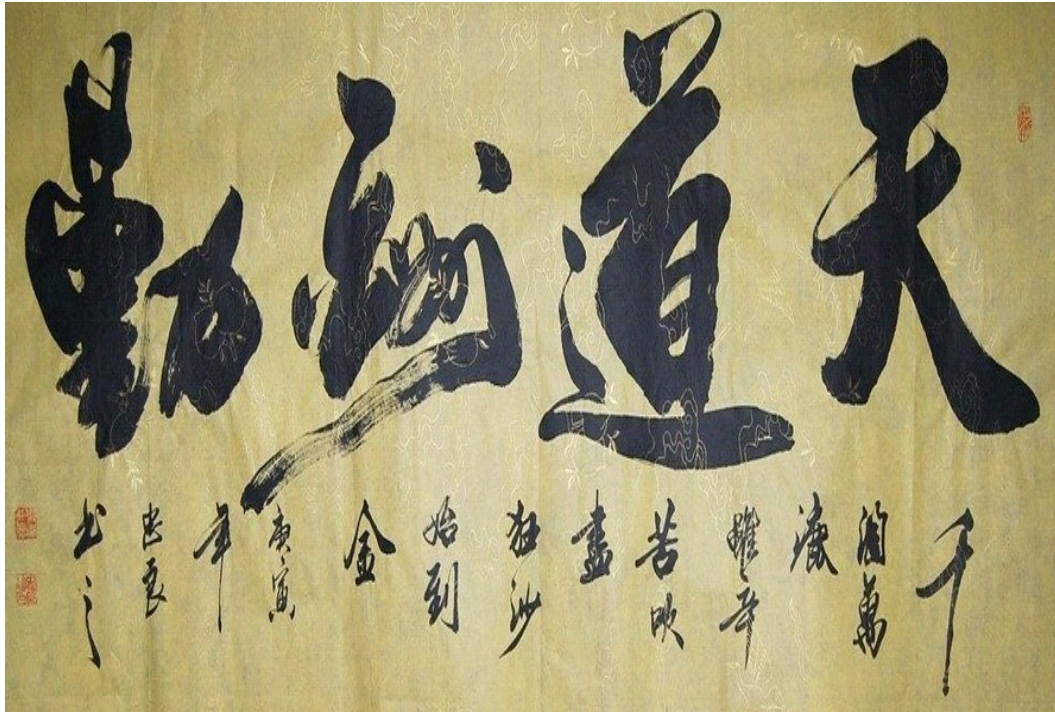 天道酬勤
千
淘萬
漉
雖辛
苦吹
盡
狂沙
始到
金
庚寅
年
忠良
书之